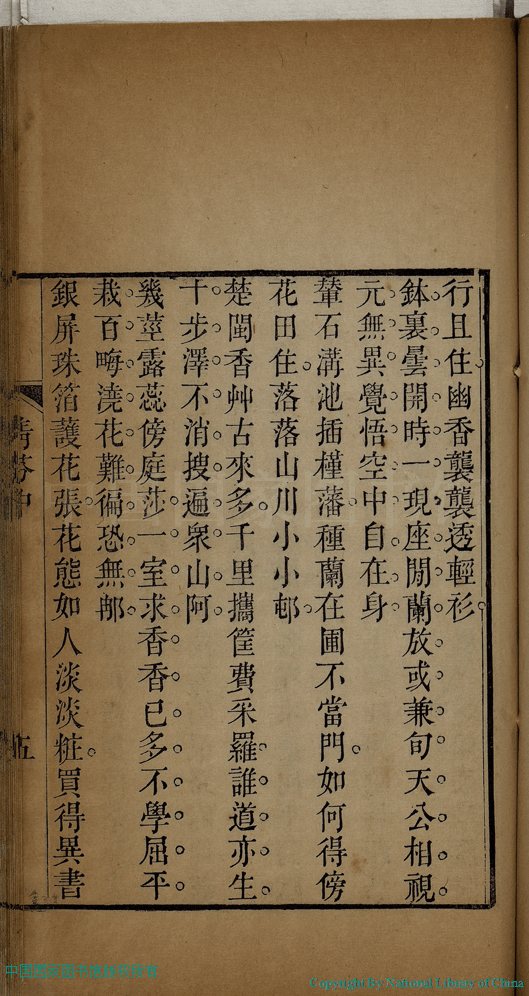 行且住幽香襲襲透輕衫
鉢裏曇開時一現座閒蘭放或兼旬天公相視
元無異覺悟空中自在身
輦石溝池插槿藩種蘭在圃不當門如何得傍
花田住落落山川小小邨
楚閩香艸古來多千里攜筐費采羅誰道亦生
十步澤不消搜遍衆山阿
幾莖露蕊傍庭莎一室求香香已多不學屈平
栽百畮澆花難徧恐無那
銀屏珠箔護花張花態如人淡淡粧買得異書
五
Copyright By National Library of China